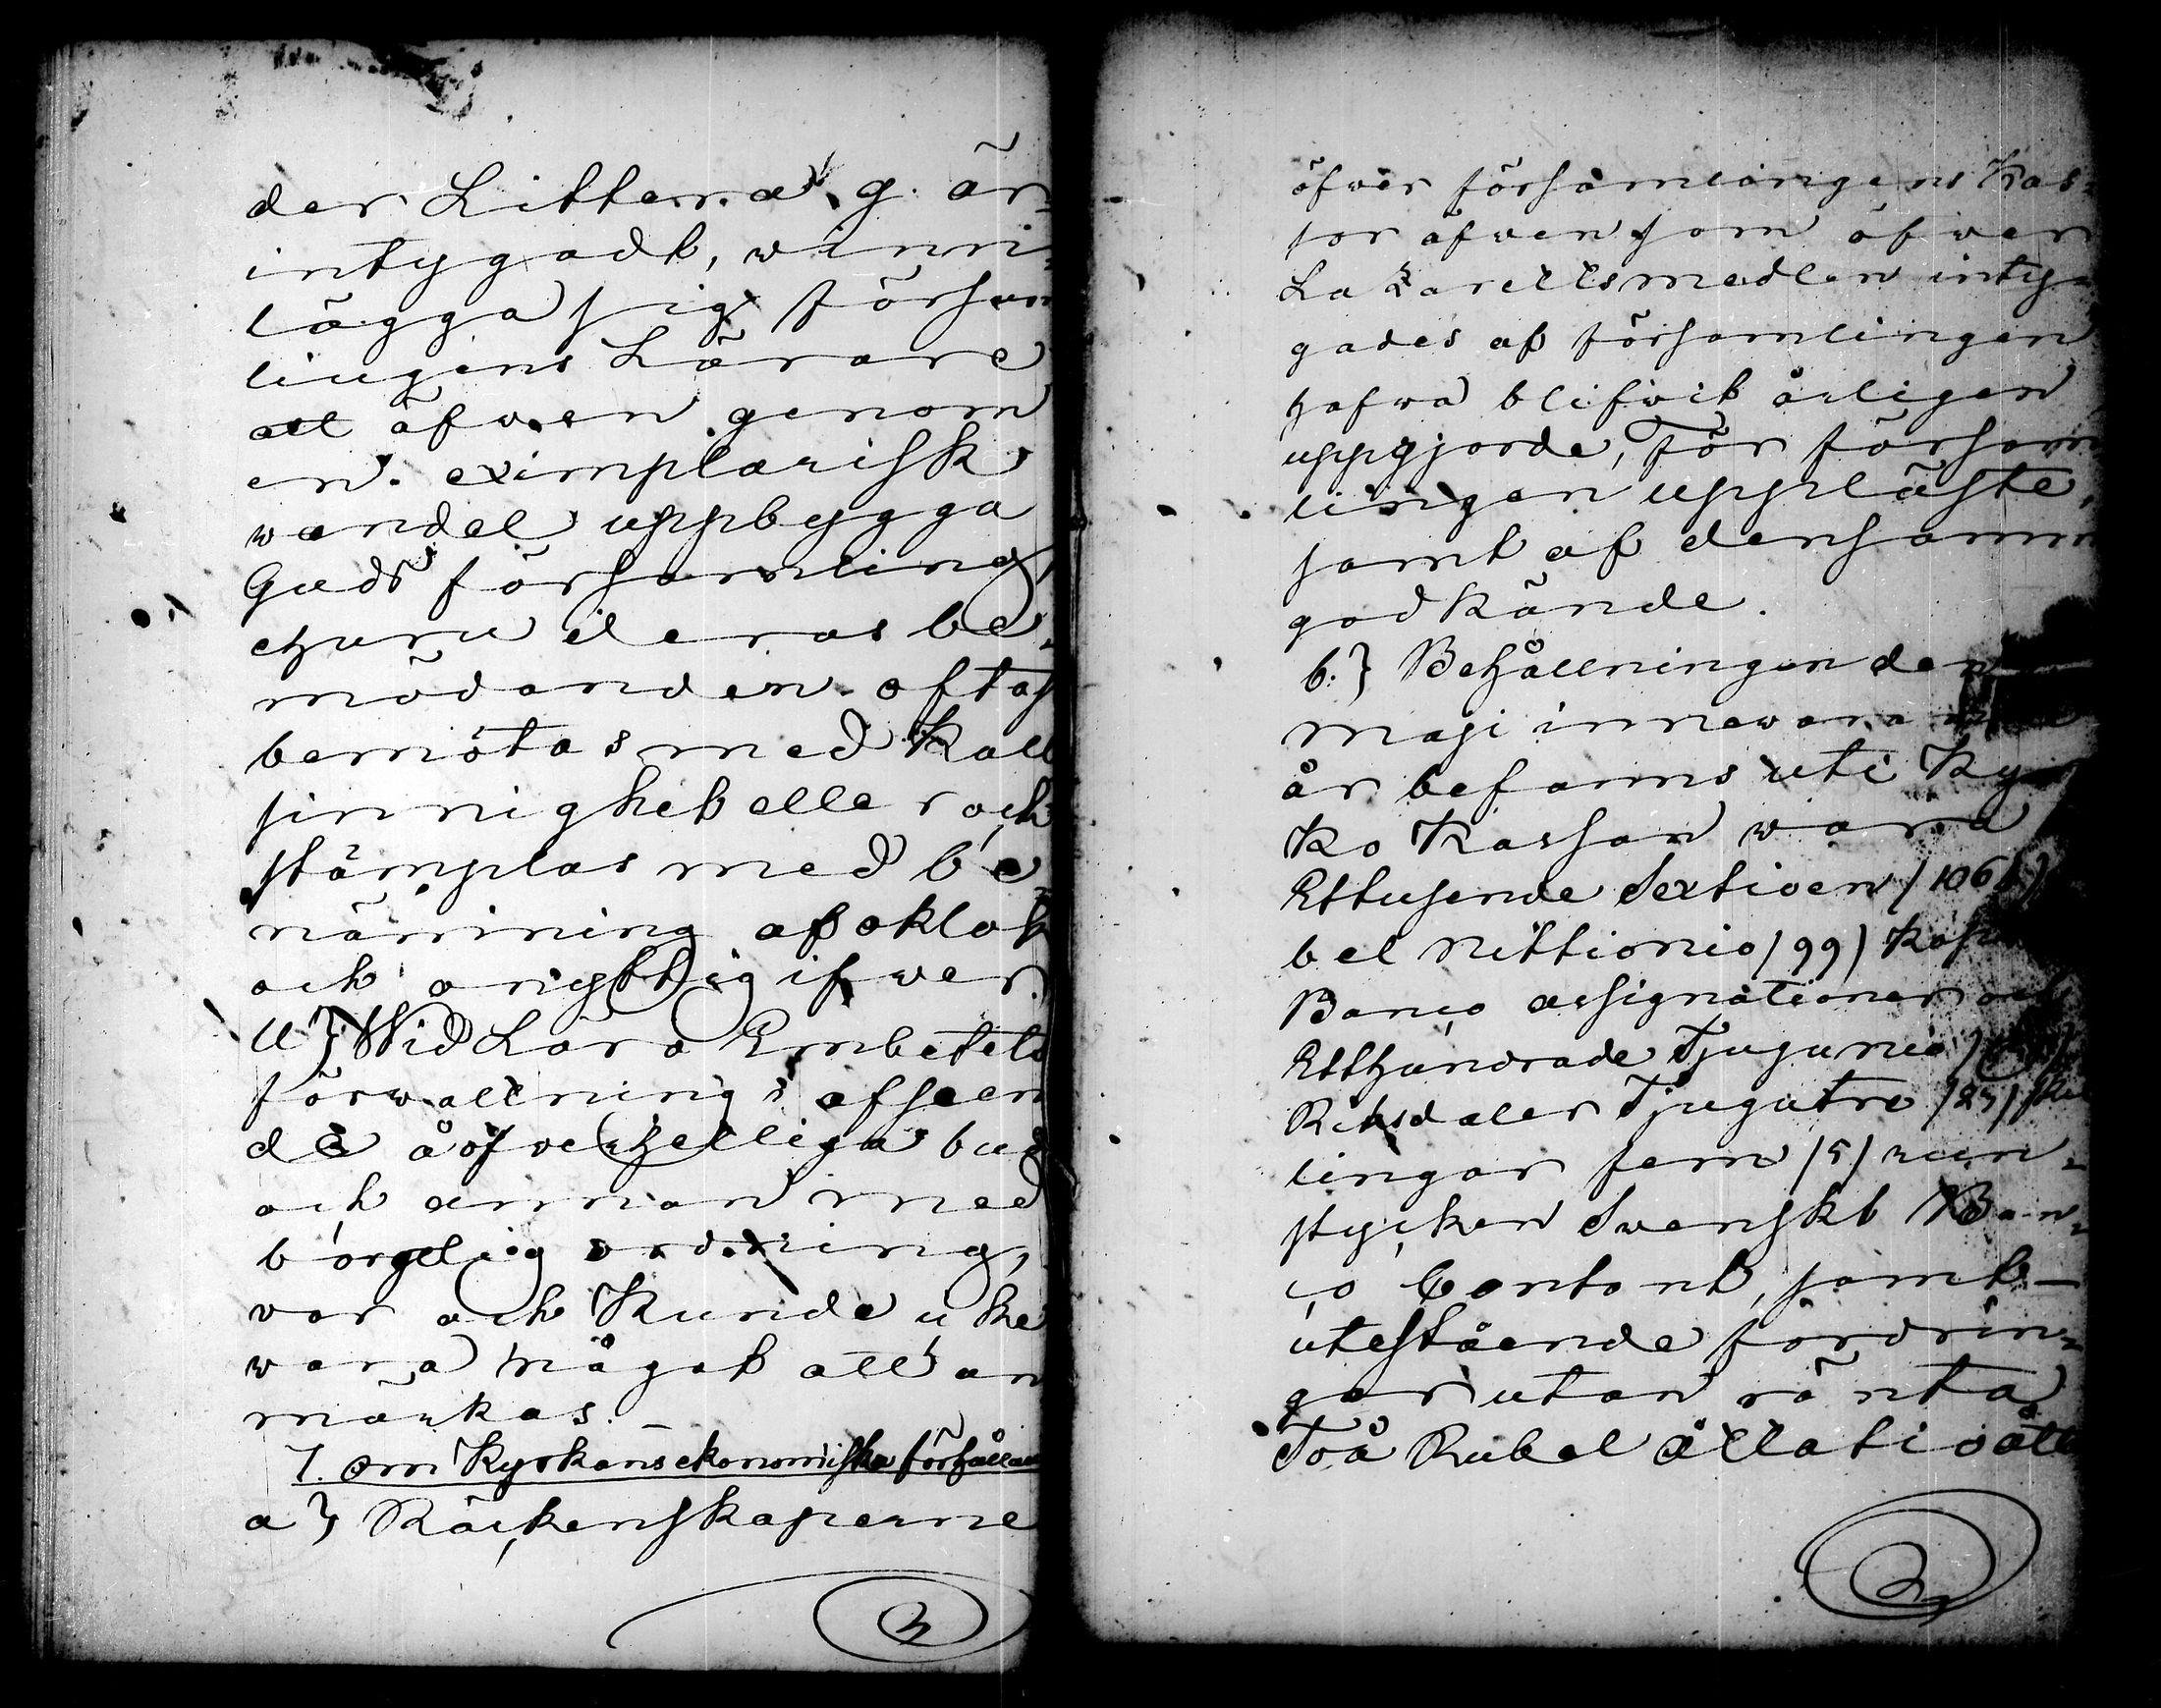 der Littera g. är
intygadt, vinn
lägga sig försam
lingens Lärare
att äfven genom
en exemplarisk
wandel uppbygga
Guds församling,
ehuru deras be-
mödanden oftast
bemötas med Kall
sinnighet eller och
stämplas med be
nämning af oklok
och onyttig ifwer.
ll} Wid Läro Embetets
förwaltnings afseen
de å ofverhelliga bud
och annan med
borgelig ordning,
var och Kunde icke
wara något att an
märkas. –
7. Om Kyrkans ekonomiska förhållan
a} Räckenskaperne
öfver församlingens Kas-
sor äfvensom öfver
Lazarettsmedlen intyg
gades af församlingen
hafva blifvit årligen
uppgjorde, för försam
lingen uppläste,
samt af densamm
godkände.
b.} Behållningen den
maji innevarande
år befanns uti Kyr
Ko Kassan wara
Ettusende Sextioen /1061/
bel Nittionio /99/ Kop
Banco assignationer och
Etthundrade Tjugunio
Riksdaler Tjugutre /23/ skil
lingar fem /5/ run-
stycken Svenskt Ban-
co Contant, samt –
utestående fordrin-
gar utan ränta
Två Rubel åttatioått